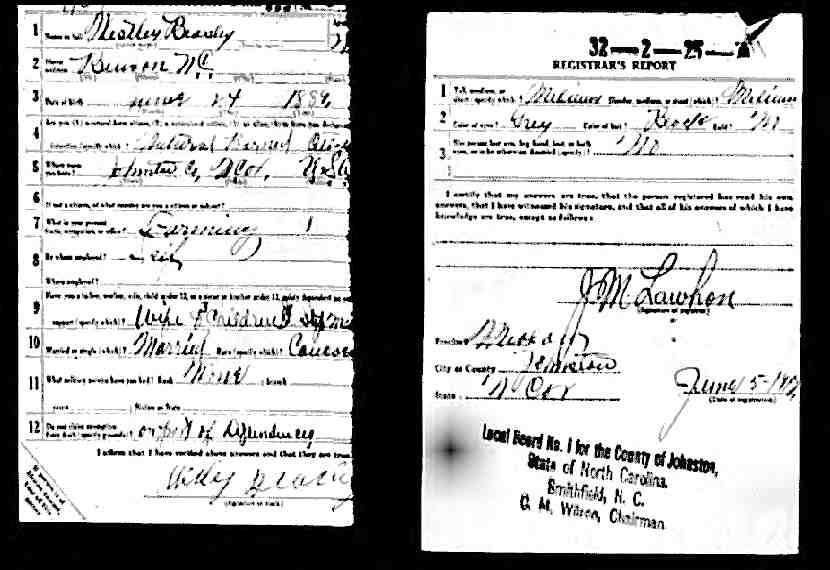 1 Name in full Beasley
2 Home address Benson N.C.
3 Date of birth June 24 1886
4 Natural Born
5 Where were you born? Johnston Co, N Car, U.S.A
6 If not a citizen, of what country are you a citizen or subject?
7 What is your present trade, occupation, or office? Farming
8 By whom employed?
Where employed?
9 Have you a father, mother, wife, child under 12, or a sister or brother under 12, solely dependent on
support (specify which)? Wife & Children
10 Married or single (which)? Married Race (specify which)?
11 What military service have you had? Rank None ; branch
years ; Nation or State
12 Do you claim exemption from draft (specify grounds)? support of Dependency
I affirm that I have verified above answers and that they are true
(Signature or mark)
32—2—25—A
REGISTRAR'S REPORT
1 Tall, medium, or short (specify which)? Medium Slender, medium, or stout (which)? Medium
2 Color of eyes? Grey Color of hair? Bald? No
3 Has person lost arm, leg, hand, foot, or both eyes, or is he otherwise disabled (specify)? No
I certify that my answers are true, that the person registered has read his own
answers, that I have witnessed his signature, and that all of his answers of which I have
knowledge are true, except as follows:
J M Lawhon
(Signature of registrar)
Precinct
City or County Johnston
State N Car June 5-
(Date of registration)
Local Board No. 1 for the County of Johnston,
State of North Carolina.
Smithfield, N. C.
G. M. Wilson, Chairman